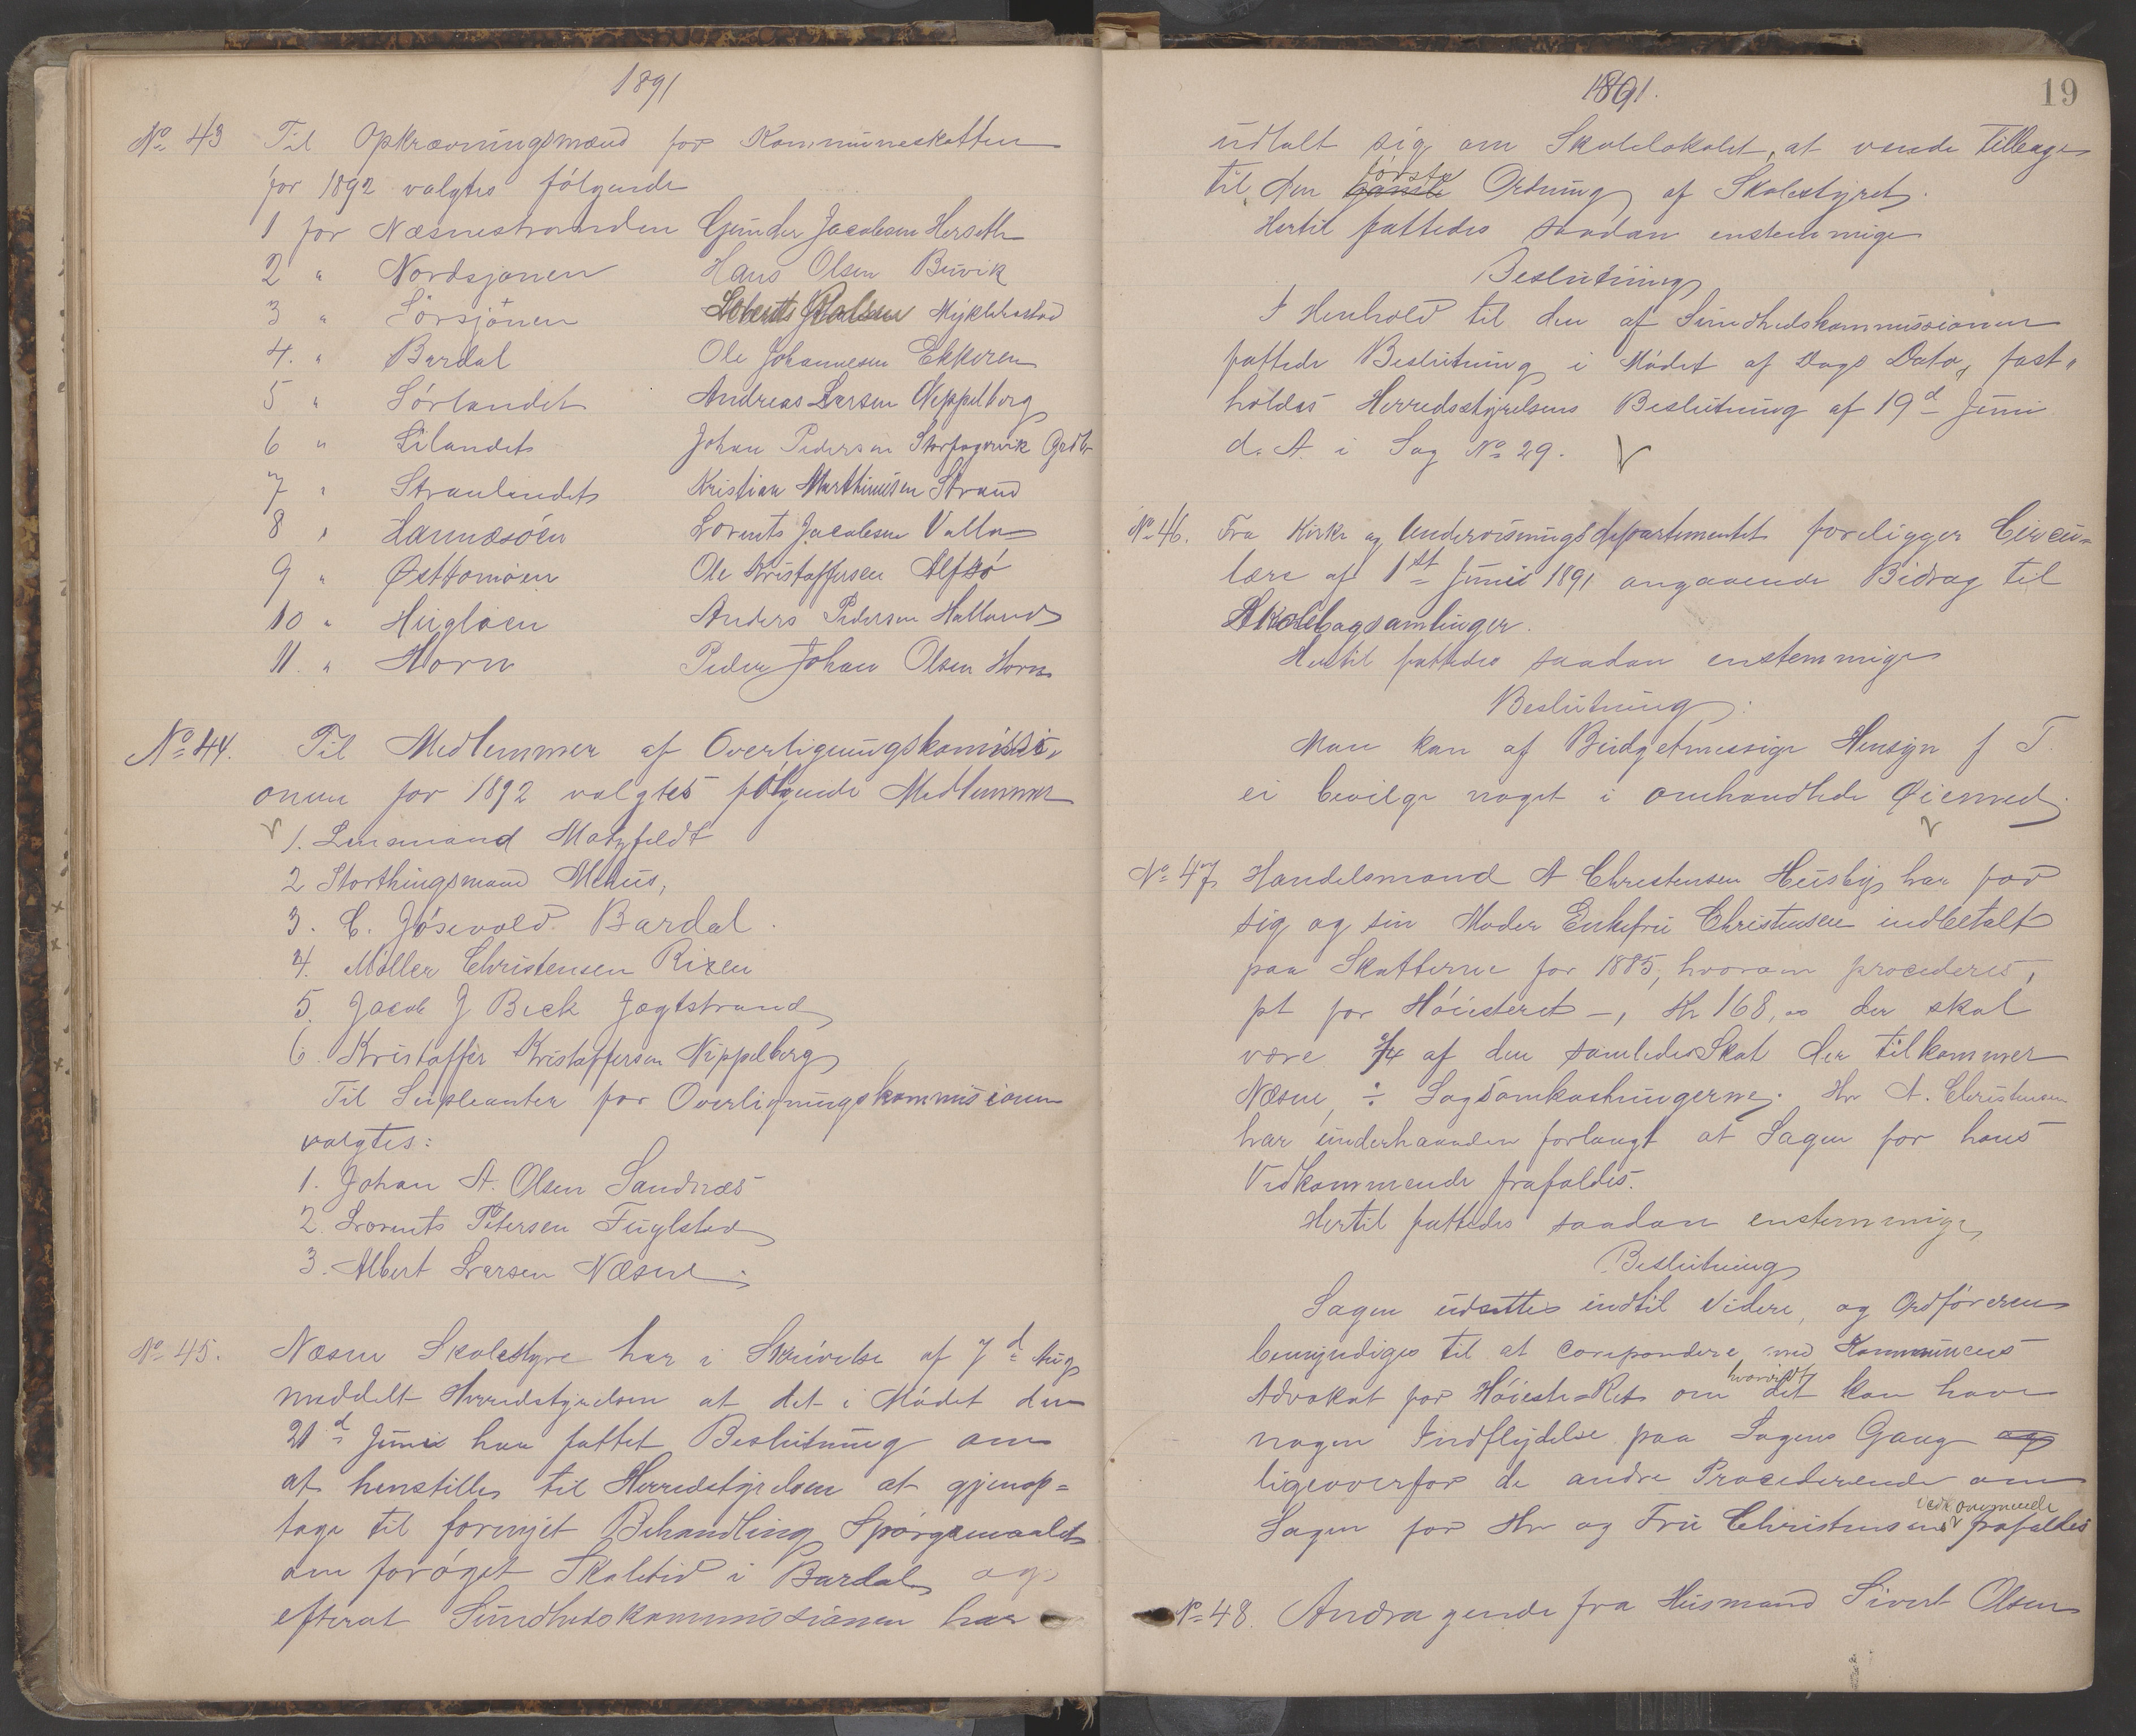 1891
No 43 Til Opkrævningsmænd for Kommuneskatten
for 1892 valgtes følgende
1 for Næsnestranden Gunder Jacobsen Herseth
2 " Nordsjonen Hans Olsen Buvik
3 " Sörsjönen Myklebostad
4. " Bardal Ole Johannesen Ekkeren
5 " Sörlandet Andreas Larsen Neppelberg
6 " Lilandet Johan Pedersen Storfagervik
7 " Straulandet Kristian Marthinusen Strand
8 " Hannæsöen Lorents Jacobsen Valla
9 " Østtomöen Ole Kristoffersen Alfsö
10 " Hugløen Anders Pedersen Halland
11. " Horn Peder Johan Olsen Horn
No 44. Til Medlemmer af Overligningskomissi„
onen for 1892 valgtes følgende Medlemmer
1. Lensmand Motzfeldt
2 Storthingsmand Mehus,
3. C. Jösevold Bardal.
4. Möller Christensen Rixen
5. Jacob J Beck Jægtstrand
6. Kristoffer Kristoffersen Nippelberg
Til Supleanter for Overligningskommisionen
valgtes:
1. Johan A. Olsen Sandnæs
2. Lorents Petersen Fuglstad
3. Albert Larsen Næsne.
No 45. Næsne Skolestyre har i Skrivelse af 7d Aug
meddelt Herredstyrelsen at det i Mödet den
21d Juni har fattet Beslutning om
at henstille til Herredstyrelsen at gjenop=
tage til fornyet Behandling Spörgsmaalet
om foröget Skoletid i Bardal og
efterat Sundhedskommissionen har
1891.
19
udtalt sig om Skolelokalet, at vende tilbage
til den ganske förste Ordning af Skolestyret.
Hertil fattedes saadan enstemmige
Beslutning
I Henhold til den af Sundhedskommissionen
fattede Beslutning i Mödet af Dags Dato, fast„
holdes Herredsstyrelsens Beslutning af 19d Juni
d. A. i Sag No 29.
No 46. Fra Kirke og Undervisningsdepartementet foreligger Circu„
lære af 1st Juni 1891 angaaende Bidrag til
Skolebogsamlinger.
Hertil fattedes saadan enstemmige
Beslutning:
Man kan af Budgetmessige Hensyn f T.
ei bevilge noget i omhandlede Øiemed.
No 47 Handelsmand A Christensen Husby har for
sig og sin Moder Enkefru Christensen indbetalt
paa Skatterne for 1885, hvorom procederes,
pt for Höiesteret –, Kr 168,00 der skal
være af den samlede Skat der tilkommer
Næsne, ÷ Sagsomkostningerne. Hr A. Christensen
har underhaanden forlangt at Sagen for hans
Vedkommende frafaldes.
Hertil fattedes saadan enstemmige
Beslutning
Sagen udsættes indtil Videre, og Ordföreren
bemyndiges til at corespondere med Kommunens
Advokat for Höieste Ret om hvorvidt det kan have
nogen Indflydelse paa Sagens Gang og
ligeoverfor de andre Procederende om
Sagen for Hr og Fru Christensens vedkommende frafaldes
No 48. Andragende fra Husmand Sivert Olsen